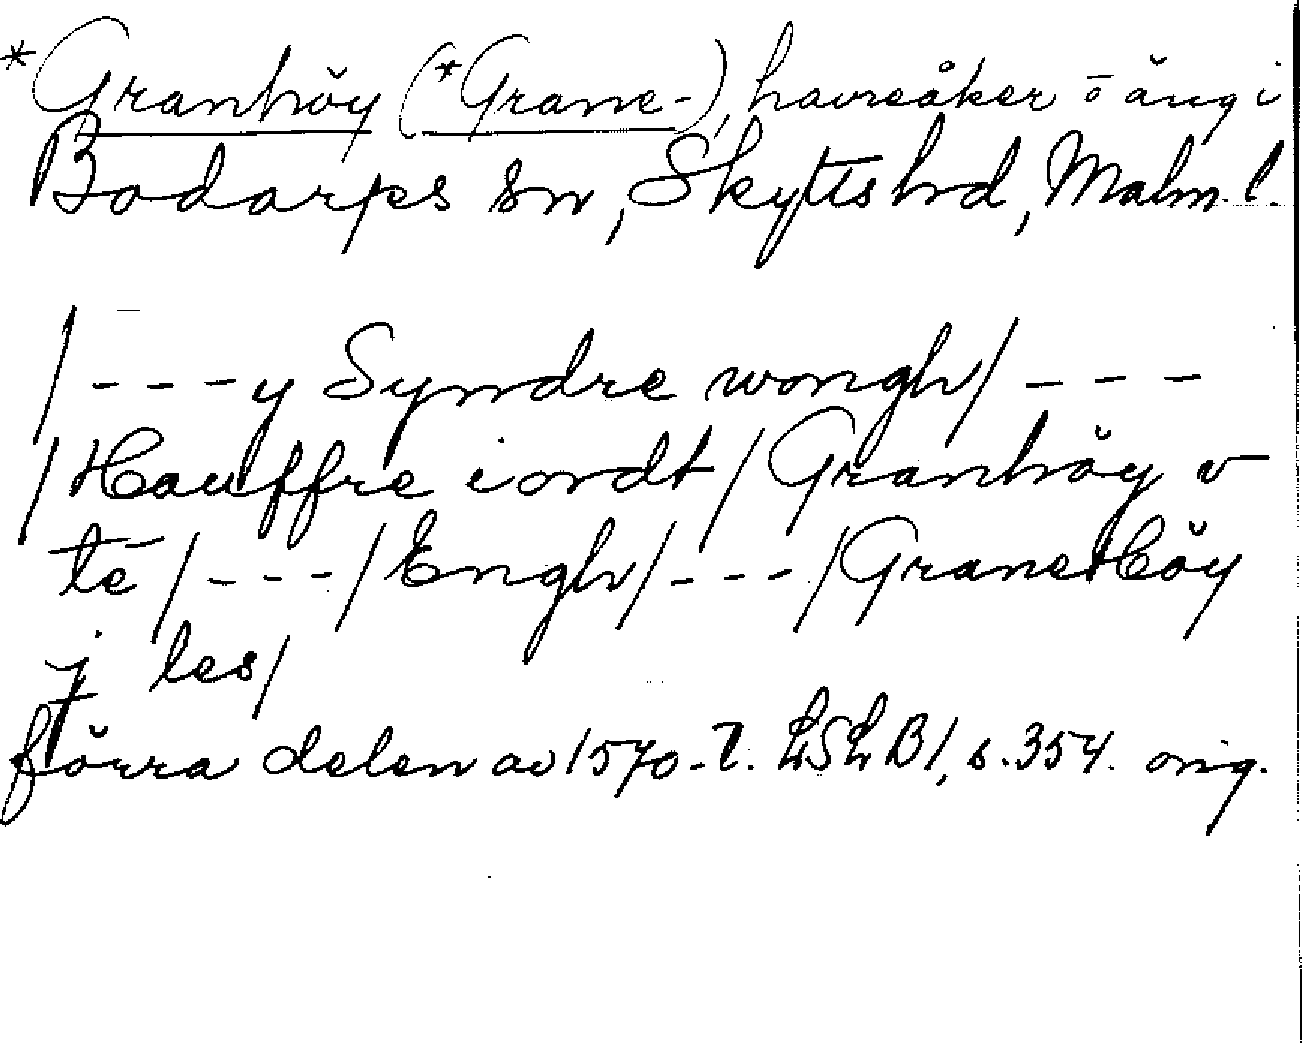 *Granhöy (*Grane-), havreåker o äng i
Bodarps sn, Skytts hd, Malm. l.
/---y Syndre wongh/---
/Hauffre iordt/Granhöy v
te/---/Engh/---/Grane Höy
j les/
förra delen av 1570-t. LSLB1, s.354. orig.